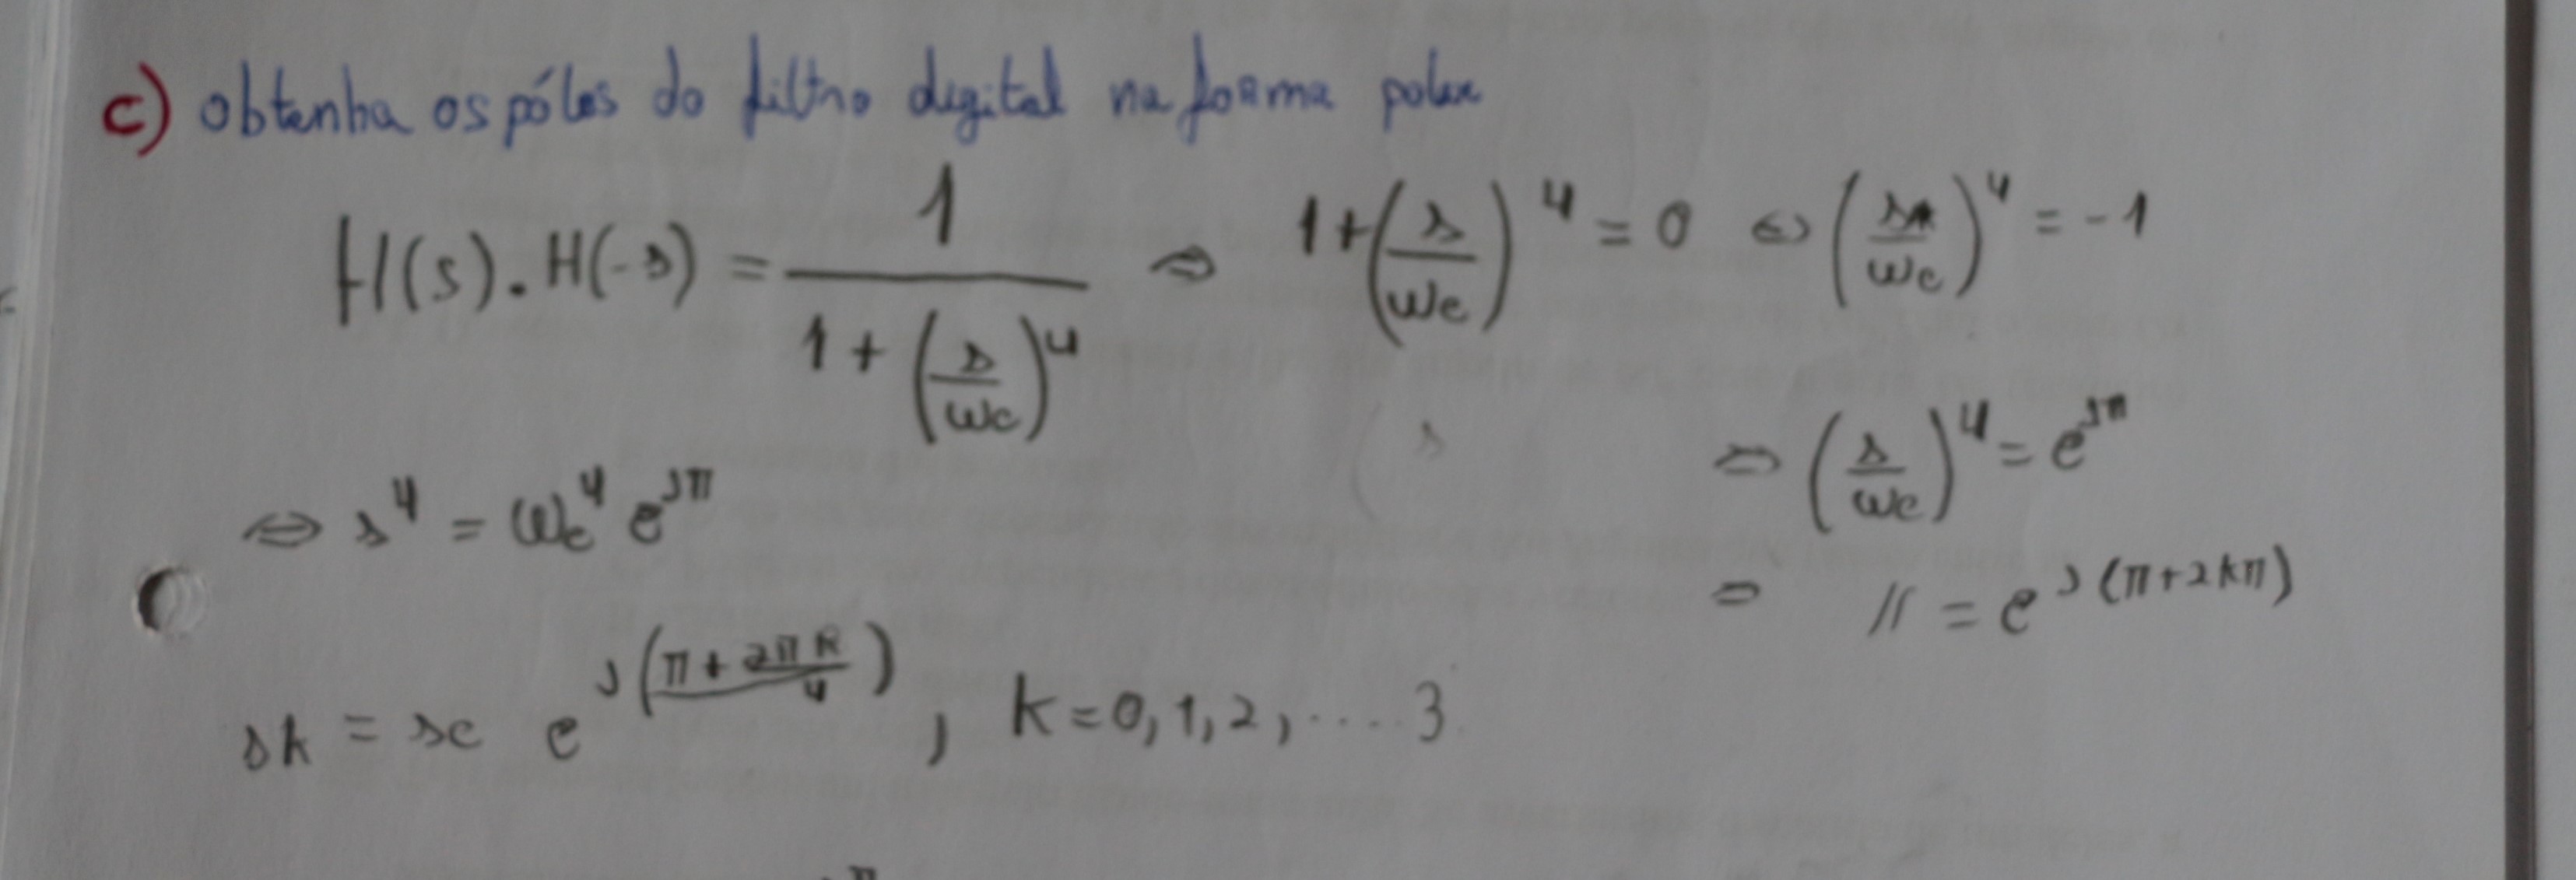 c) obtenha os pólos do filtro digital na forma polar
H(s).H(-s) = 1 / (1 + (s/ωc)^4) ⇔ 1+(s/ωc)^4 = 0 ⇔ (s/ωc)^4 = -1
⇔ (s/ωc)^4 = e^jπ
⇔ s^4 = ωc^4 e^jπ
= // = e^j(π+2kπ)
sk = sc e^j((π+2πk)/4), k=0,1,2,....3